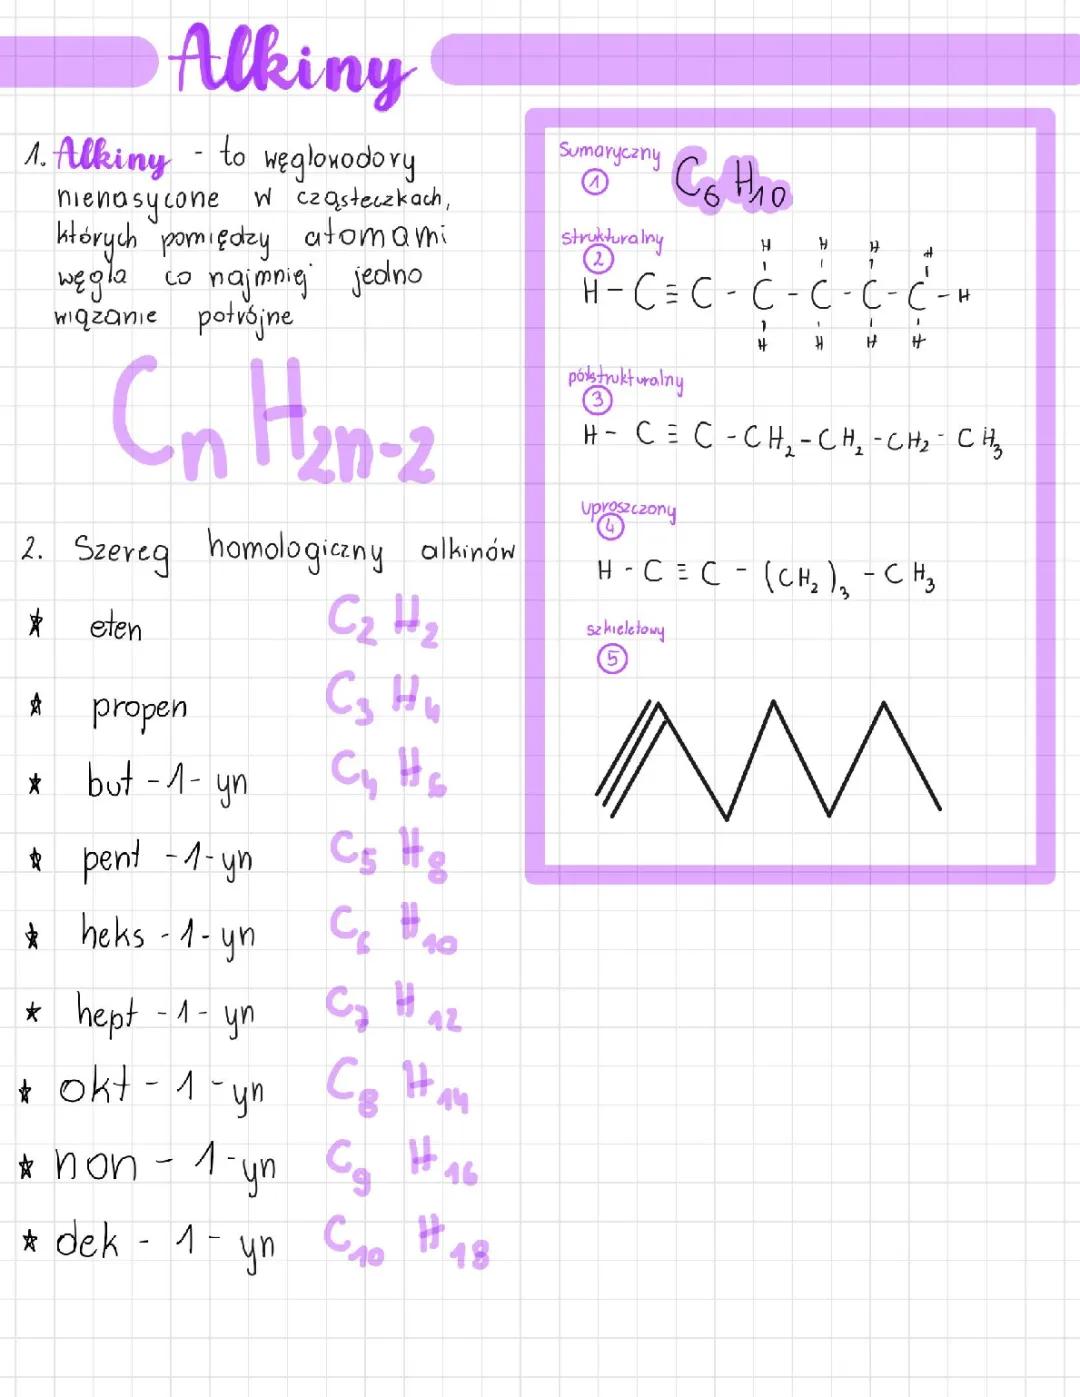 Alkiny
1. Alkiny - to węglowodory
nienasycone w cząsteczkach,
których pomiędzy atomami
węgla co najmniej jedno
wiązanie potrójne
CnH2n-2
2. Szereg homologiczny alkinów
* eten C2H2
* propen C3H4
* but-1-yn C4H6
* pent-1-yn C5H8
* heks-1-yn C6H10
* hept-1-yn C7H12
* okt-1-yn C8H14
* non-1-yn C9H16
* dek-1-yn C10H18
Sumaryczny
1 C6H10
strukturalny
2
H H H H
H-C≡C-C-C-C-C-H
H H H H
półstrukturalny
3
H-C≡C-CH2-CH2-CH2-CH3
uproszczony
4
H-C≡C-(CH2)3-CH3
szkieletowy
5